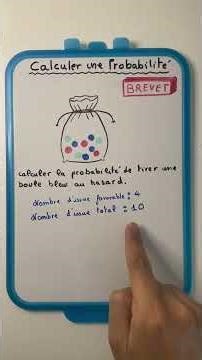 Calculer une Probabilité
BREVET
Calculer la probabilité de tirer une
boule bleu au hasard.
Nombre d'issue favorable : 4
Nombre d'issue total : 10